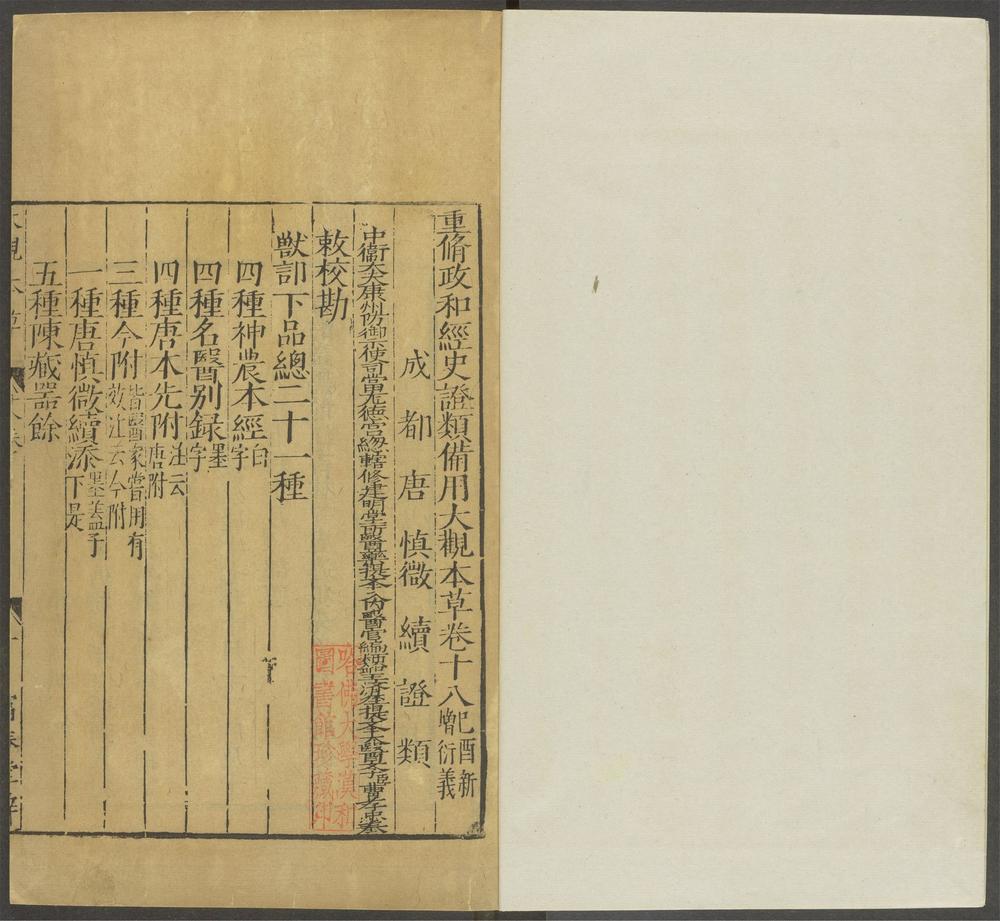 重脩政和經史證類備用大觀本草卷十八己酉新增衍義
成都唐慎微續證類
中衛大夫康州防禦使句當龍德宮總轄修建明堂所醫藥提舉入內醫官編類聖濟經提舉太醫學臣曹孝忠奉
敕校勘
獸部下品總二十一種
四種神農本經白字
四種名醫別錄墨字
四種唐本先附注云唐附
三種今附皆醫家嘗用有效注云今附
一種唐慎微續添墨盖子下是
五種陳藏器餘
哈佛大學漢和圖書館珍藏印